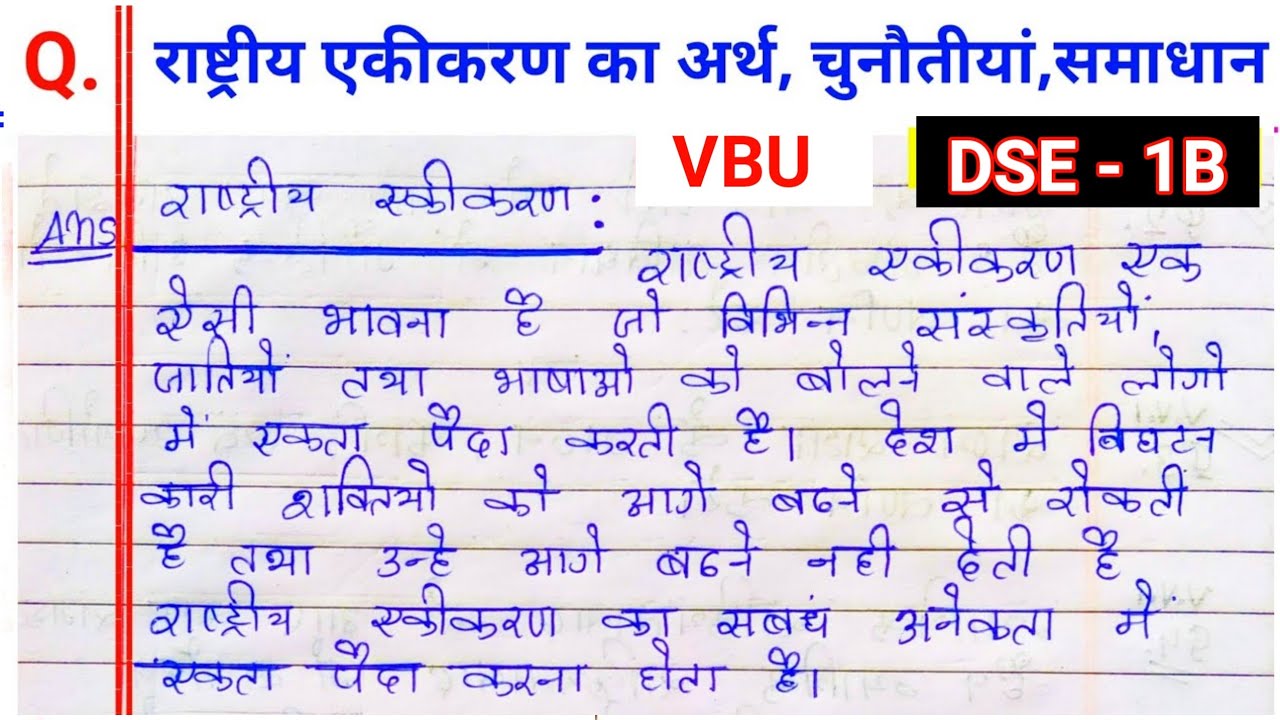 Q. राष्ट्रीय एकीकरण का अर्थ, चुनौतीयां,समाधान
VBU
DSE - 1B
राष्ट्रीय एकीकरण :
Ans
राष्ट्रीय एकीकरण एक
ऐसी भावना है जो विभिन्न संस्कृतियों,
जातियों तथा भाषाओ को बोलने वाले लोगो
में एकता पैदा करती है। देश मे विघटन
कारी शक्तियो को आगे बढने से रोकती
है तथा उन्हे आगे बढने नही देती है
राष्ट्रीय एकीकरण का सबधं अनेकता में
एकता पैदा करना होता है।